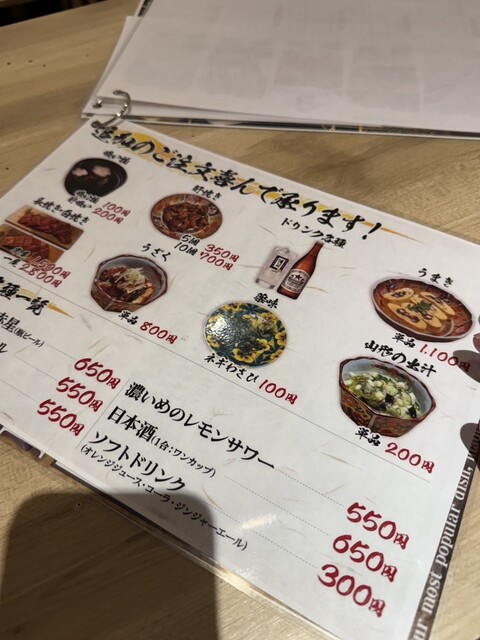 追加のご注文喜んで承ります!
吸い物
100円
200円
肝焼き
5酒 350円
10酒 700円
ドリンク各種
うまき
単品 1,100円
長焼き・白焼き
一尾 2,800円
うざく
単品 800円
薬味
ネギわさび 100円
山形の出汁
単品 200円
種一覧
650円
550円
550円
濃いめのレモンサワー 550円
日本酒(1合:ワンカップ) 650円
ソフトドリンク 300円
(オレンジジュース・コーラ・ジンジャーエール)
ur most popular dish,